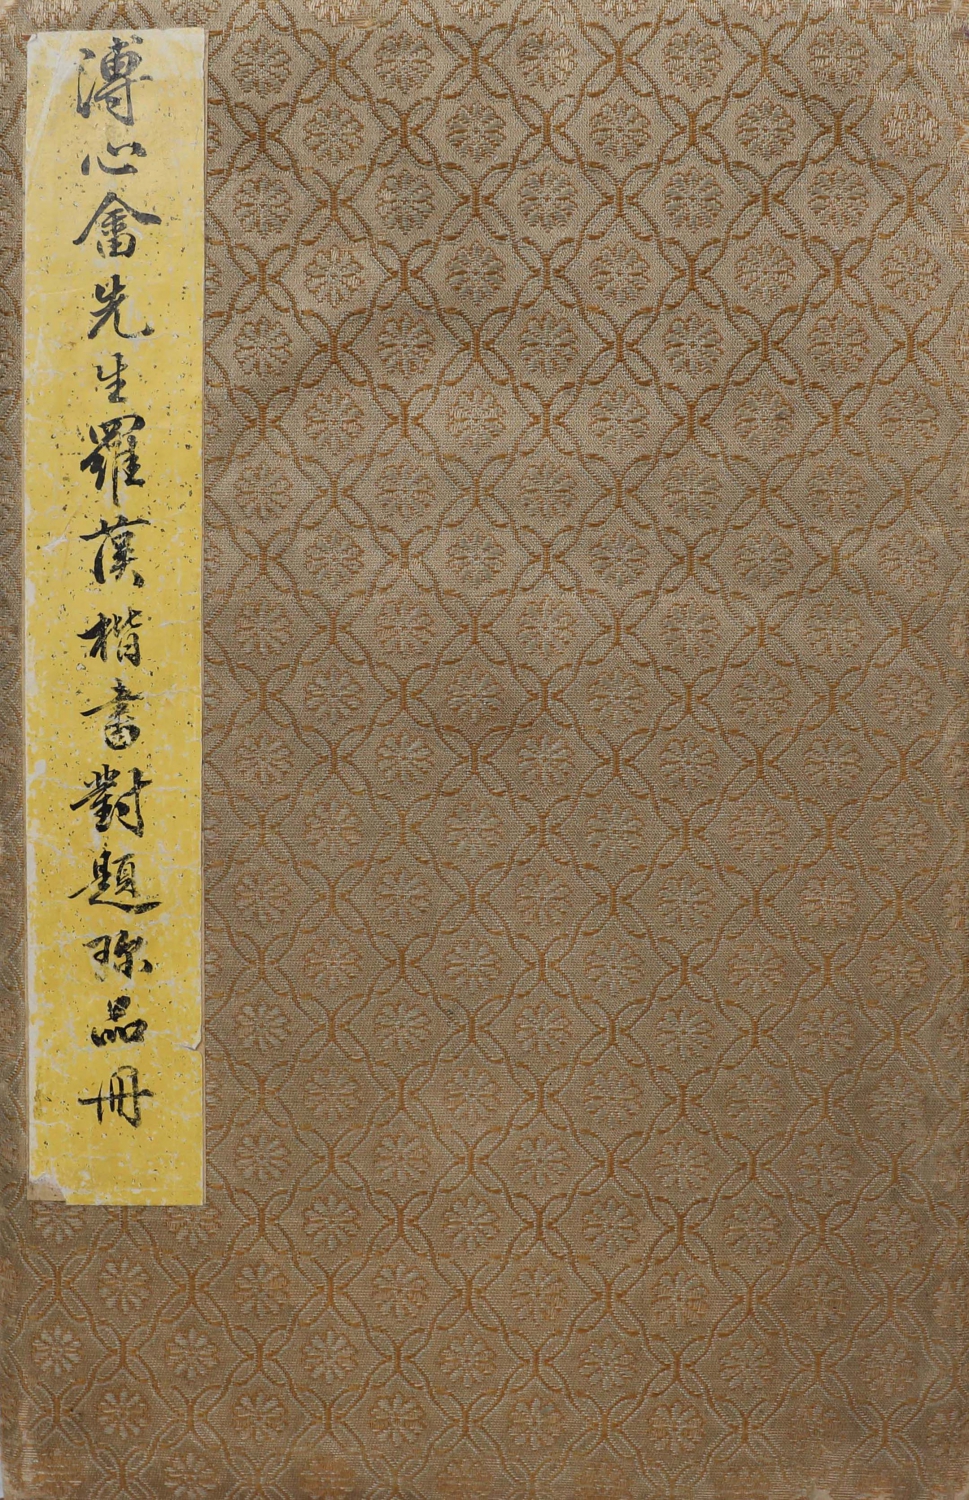 溥心畬先生羅漢楷書對題珎品冊